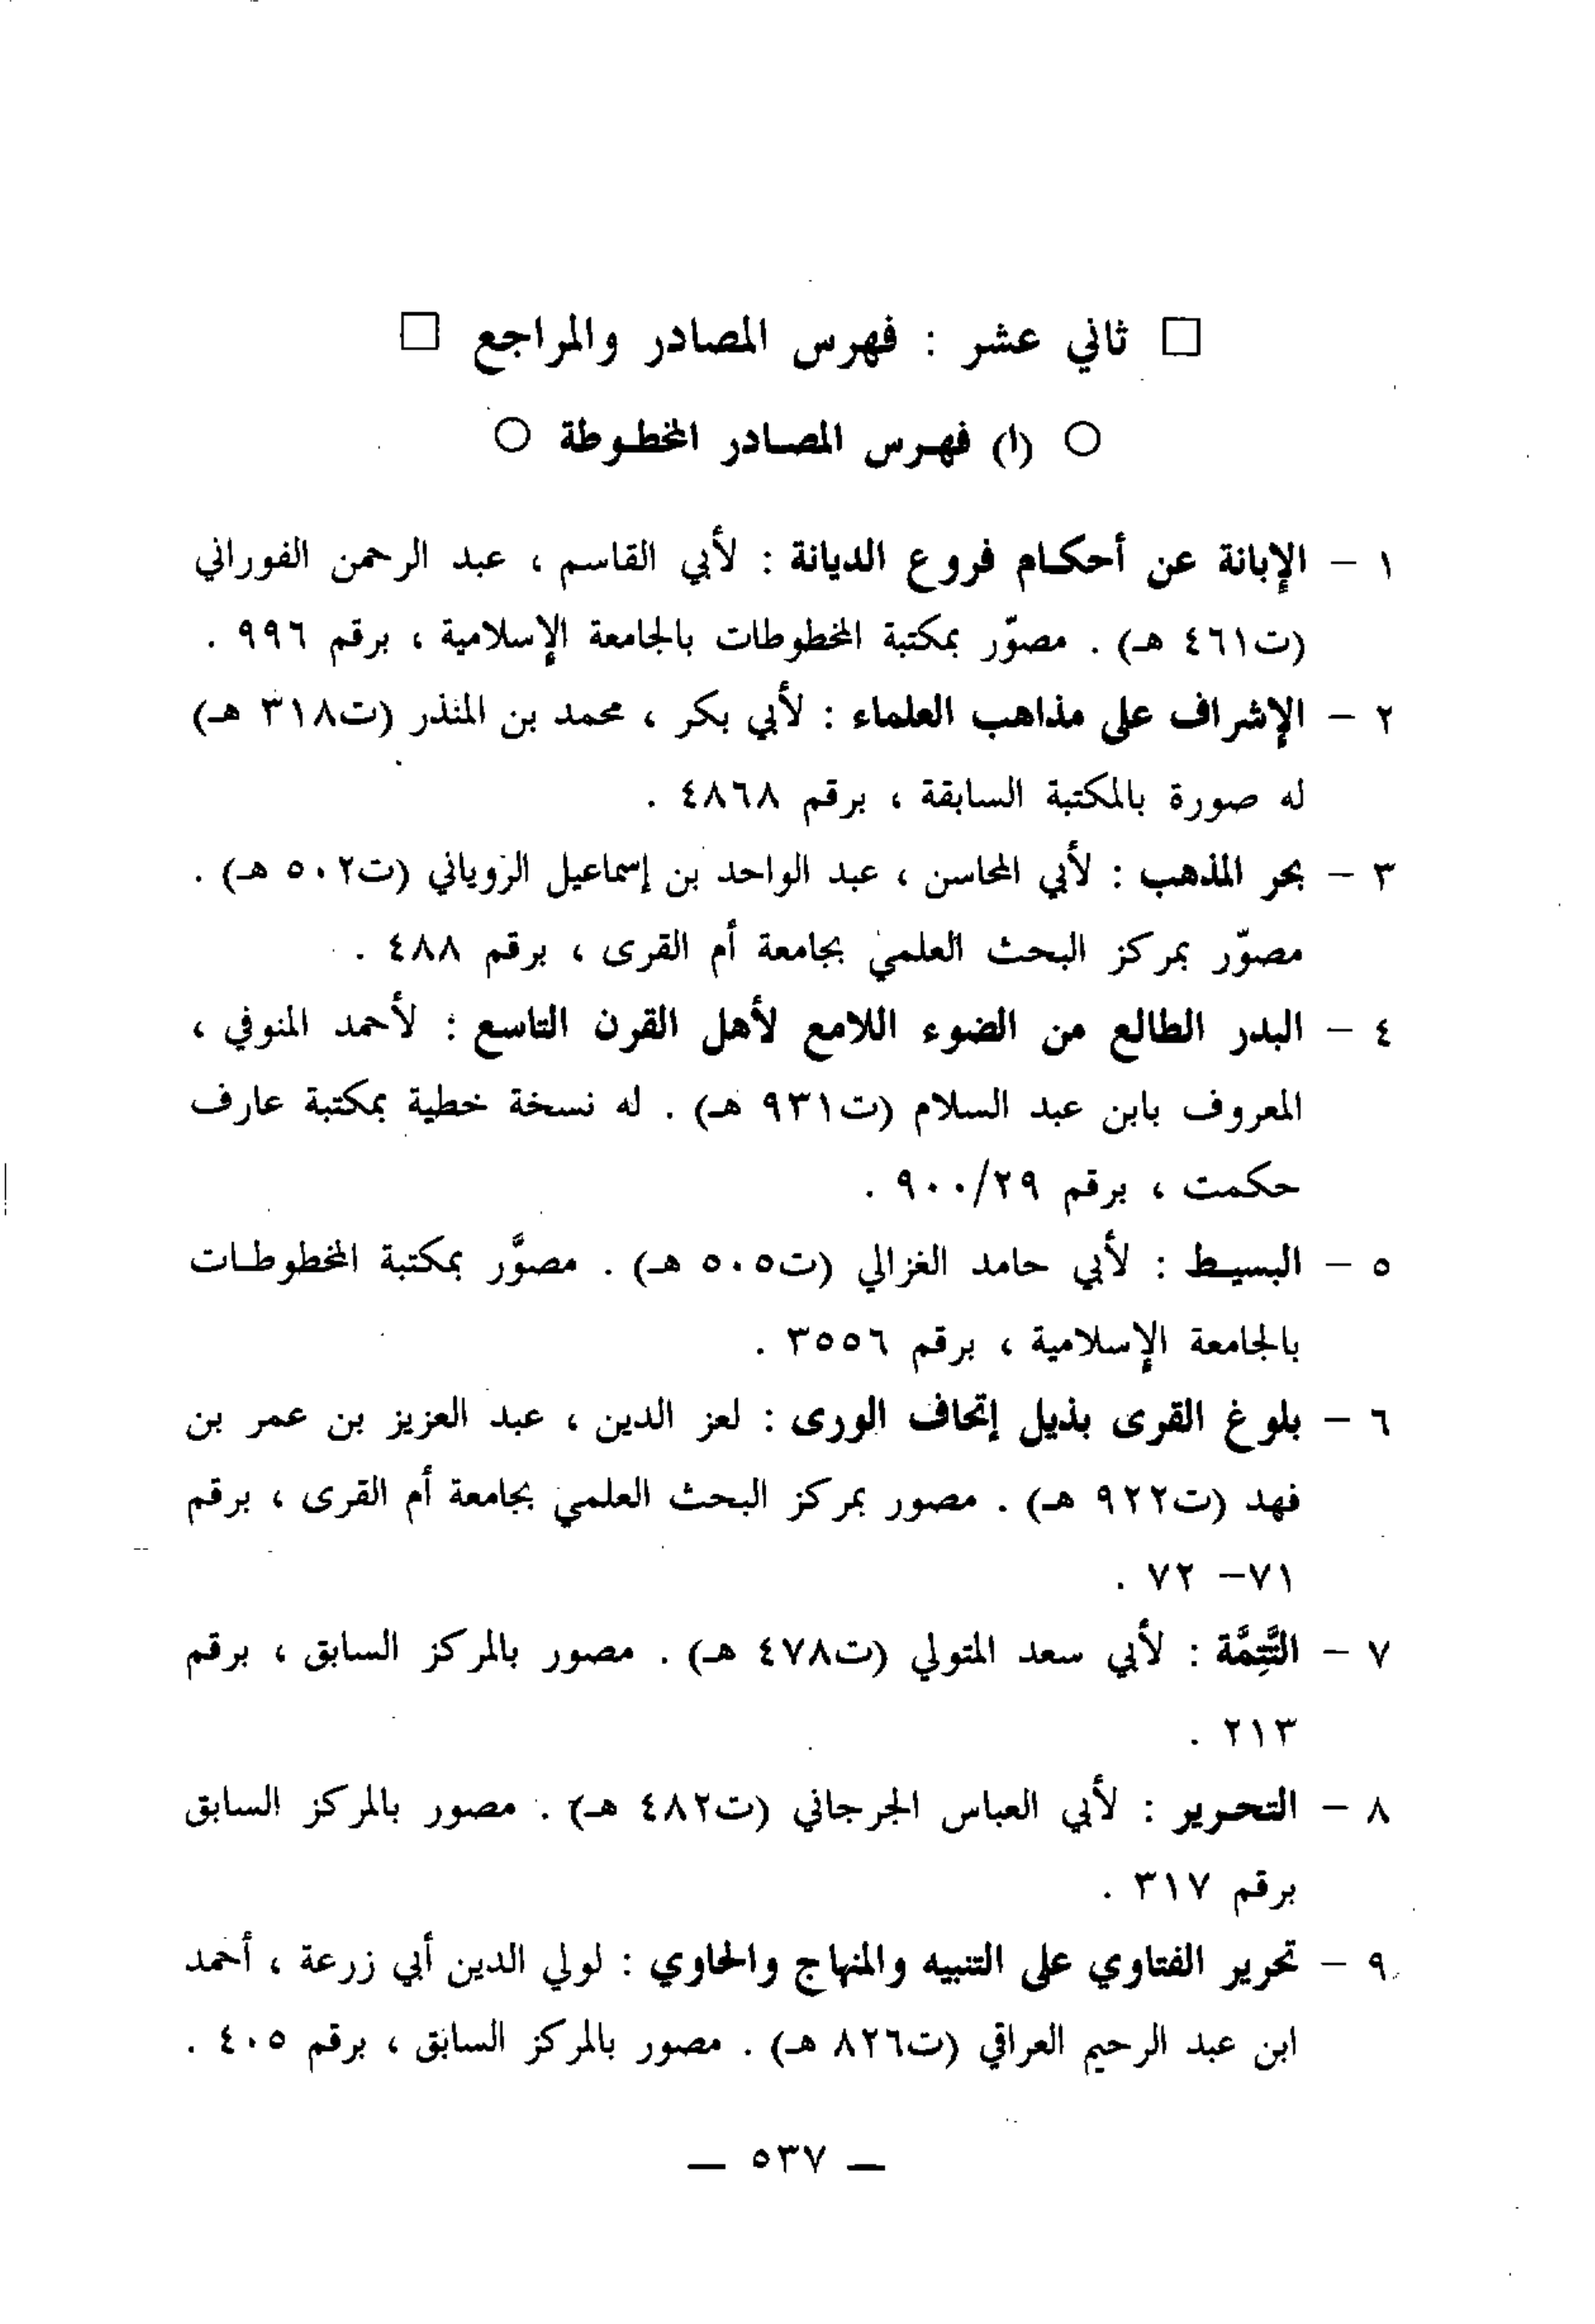 □ ثاني عشر : فهرس المصادر والمراجع □
○ (ا) فهـرس المصـادر المخطـوطة ○
١ – الإبانة عن أحكـام فروع الديانة : لأبي القاسم ، عبد الرحمن الفوراني
(ت٤٦١ هـ) . مصوّر بمكتبة المخطوطات بالجامعة الإسلامية ، برقم ٩٩٦ .
٢ – الإشراف على مذاهب العلماء : لأبي بكر ، محمد بن المنذر (ت٣١٨ هـ)
له صورة بالمكتبة السابقة ، برقم ٤٨٦٨ .
٣ – بحر المذهب : لأبي المحاسن ، عبد الواحد بن إسماعيل الزوياني (ت٥٠٢ هـ) .
مصوّر بمركز البحث العلمي بجامعة أم القرى ، برقم ٤٨٨ .
٤ – البدر الطالع من الضوء اللامع لأهل القرن التاسع : لأحمد المنوفي ،
المعروف بابن عبد السلام (ت٩٣١ هـ) . له نسخة خطية بمكتبة عارف
حكمت ، برقم ٩٠٠/٢٩ .
٥ – البسيـط : لأبي حامد الغزالي (ت٥٠٥ هـ) . مصوَّر بمكتبة المخطوطـات
بالجامعة الإسلامية ، برقم ٣٥٥٦ .
٦ – بلوغ القرى بذيل إتحاف الورى : لعز الدين ، عبد العزيز بن عمر بن
فهد (ت٩٢٢ هـ) . مصور بمركز البحث العلمي بجامعة أم القرى ، برقم
٧١– ٧٢ .
٧ – التَّتِمَّة : لأبي سعد المتولي (ت٤٧٨ هـ) . مصور بالمركز السابق ، برقم
٢١٣ .
٨ – التحـرير : لأبي العباس الجرجاني (ت٤٨٢ هـ) . مصور بالمركز السابق
برقم ٣١٧ .
٩ – تحرير الفتاوي على التنبيه والمنهاج والحاوي : لولي الدين أبي زرعة ، أحمد
ابن عبد الرحيم العراقي (ت٨٢٦ هـ) . مصور بالمركز السابق ، برقم ٤٠٥ .
— ٥٣٧ —